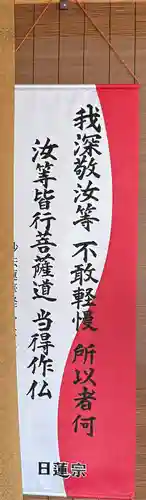 我深敬汝等 不敢軽慢 所以者何
汝等皆行菩薩道 当得作仏
日蓮宗